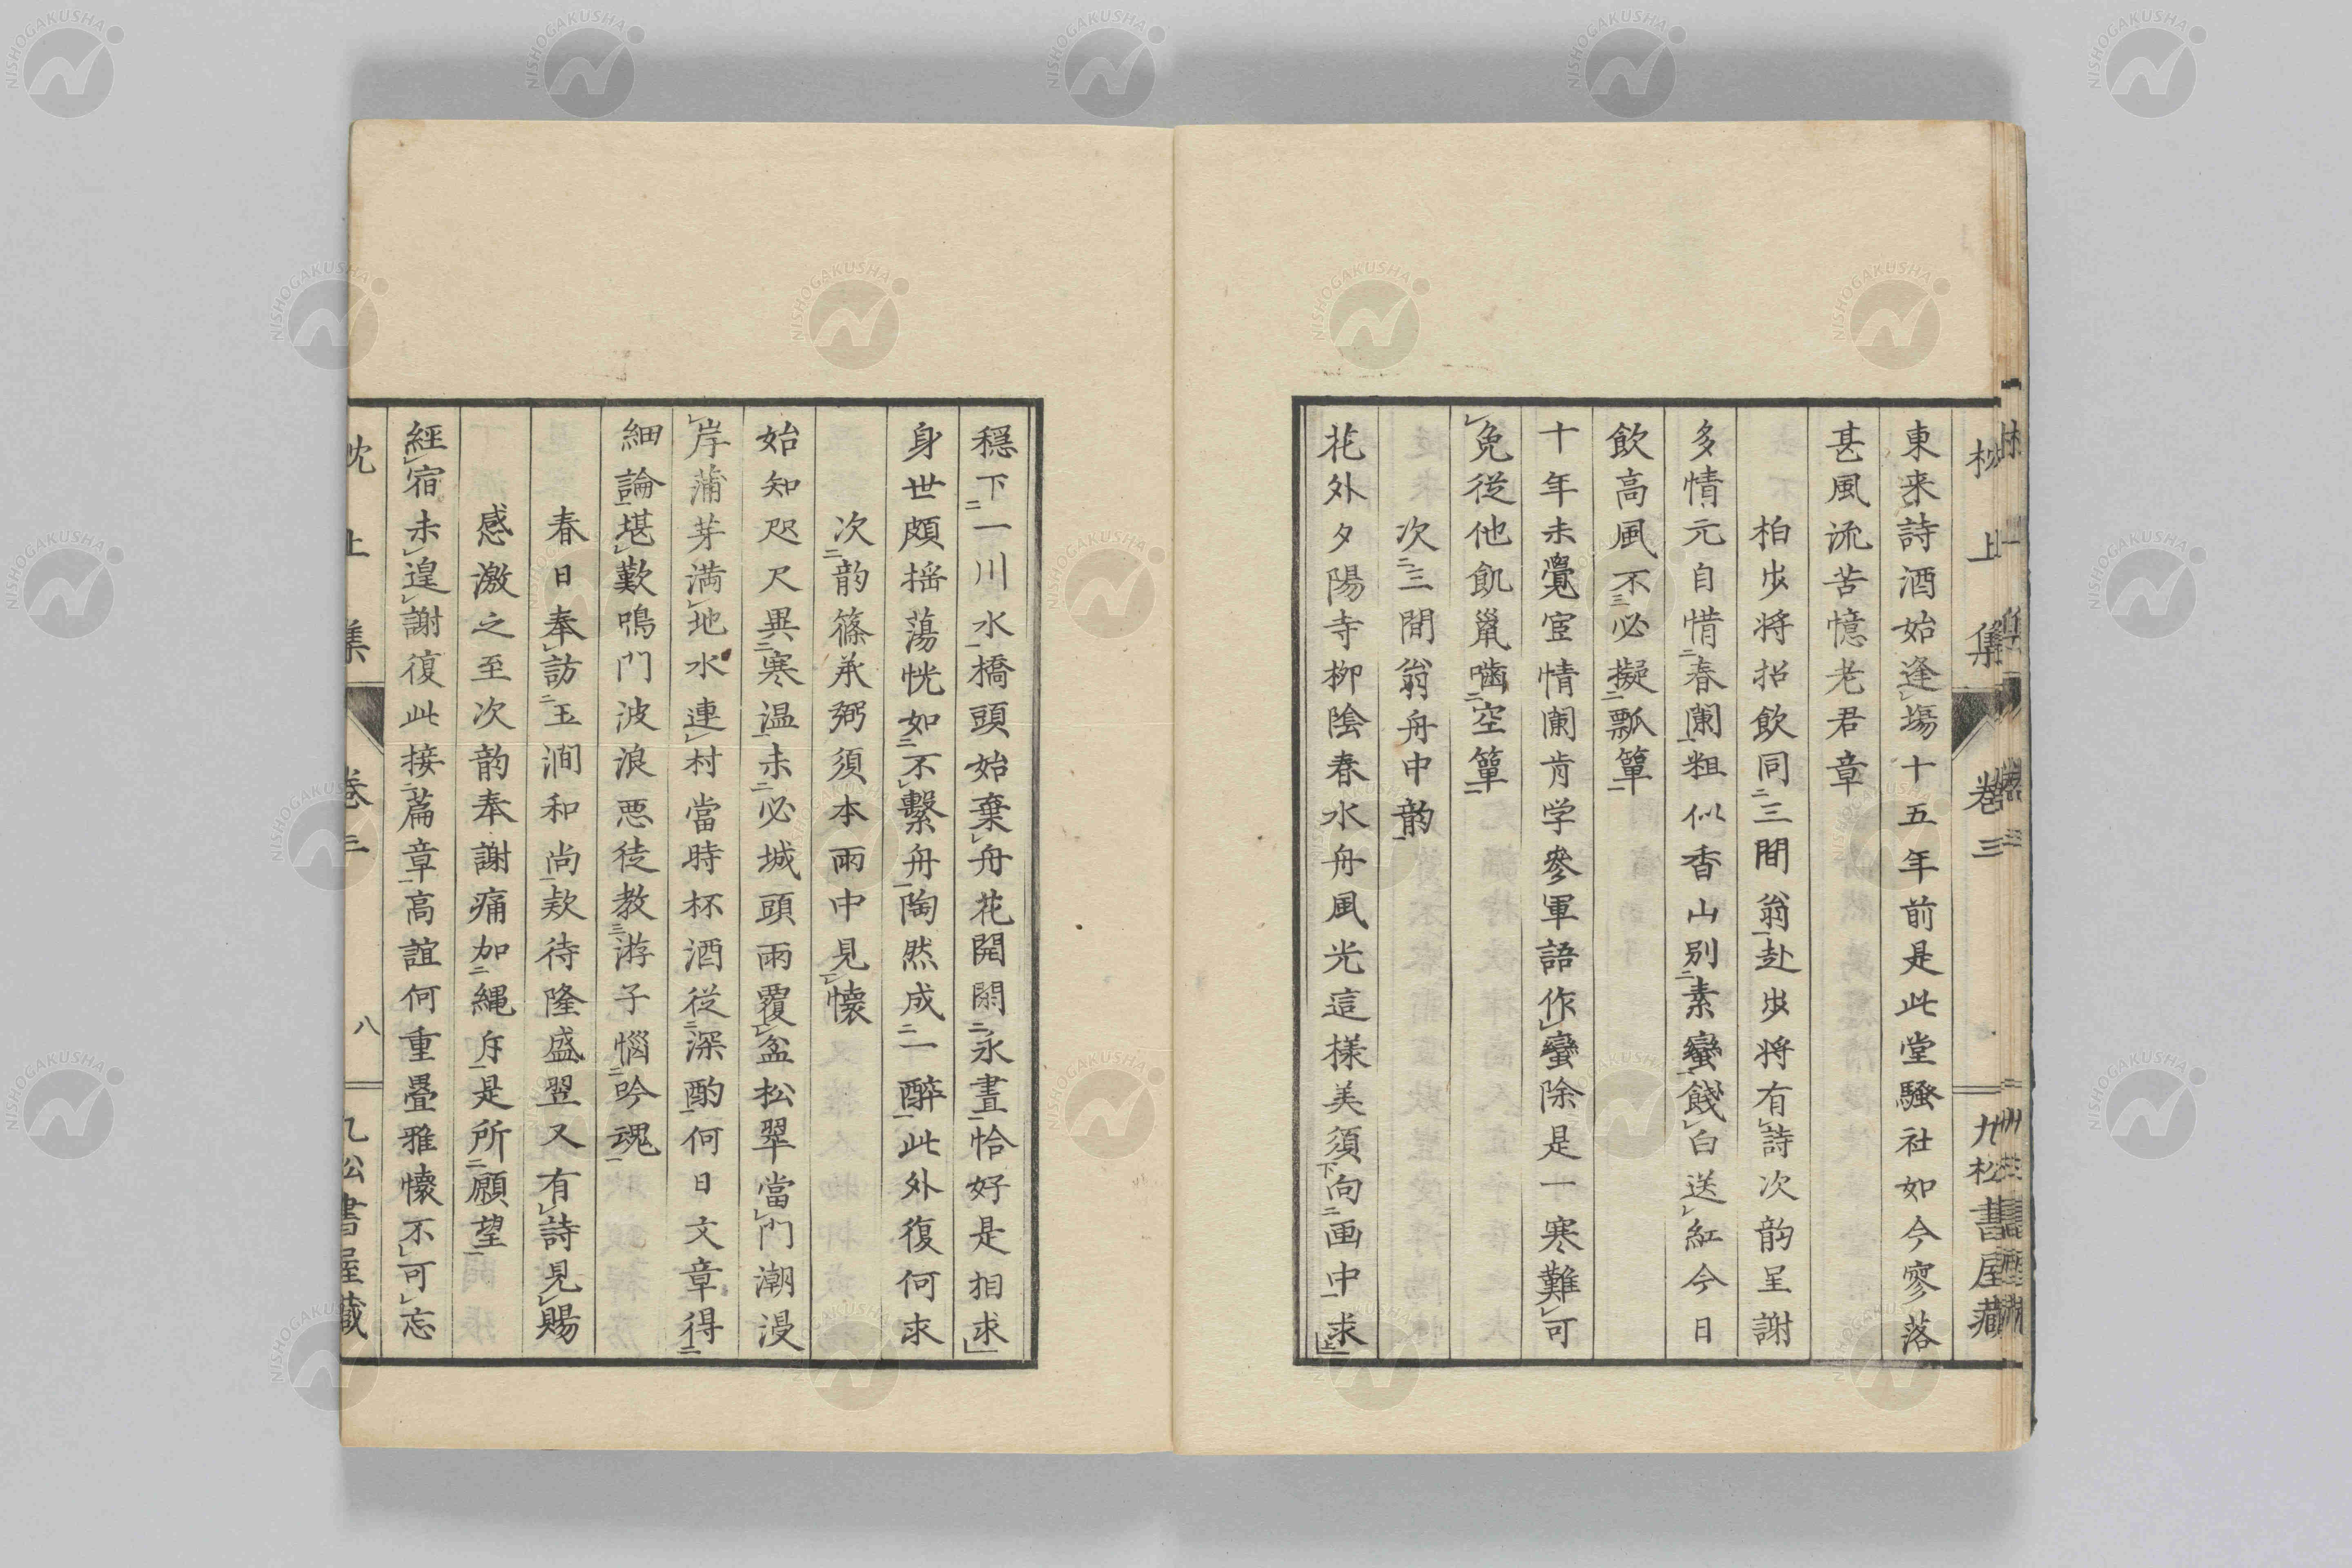 東来詩酒始逢場十五年前是此堂騷社如今寥落
甚風流苦憶老君章
柏歩将招飲同三間翁赴歩将有詩次韵呈謝
多情元自惜春闌粗似香山別素蠻餞白送紅今日
飲高風不必擬瓢簞
十年未覺宦情闌肯学參軍語作蠻除是一寒難可
免從他飢鼠嚙空簞
次三間翁舟中韵
花外夕陽寺柳陰春水舟風光這様美須向画中求
穏下一川水橋頭始棄舟花開閑永晝恰好是相求
身世頗揺蕩恍如不繫舟陶然成一醉此外復何求
次韵篠承弼須本雨中見懐
始知咫尺異寒温未必城頭雨覆盆松翠當門潮浸
岸蒲芽満地水連村當時杯酒從深酌何日文章得
細論堪歎鳴門波浪悪徒教游子惱吟魂
春日奉訪玉澗和尚欵待隆盛翌又有詩見賜
感激之至次韵奉謝痛加繩斤是所願望
經宿未遑謝復此接篇章高誼何重疊雅懐不可忘
枕上集
卷三
八
九松書屋藏
NISHOGAKUSHA